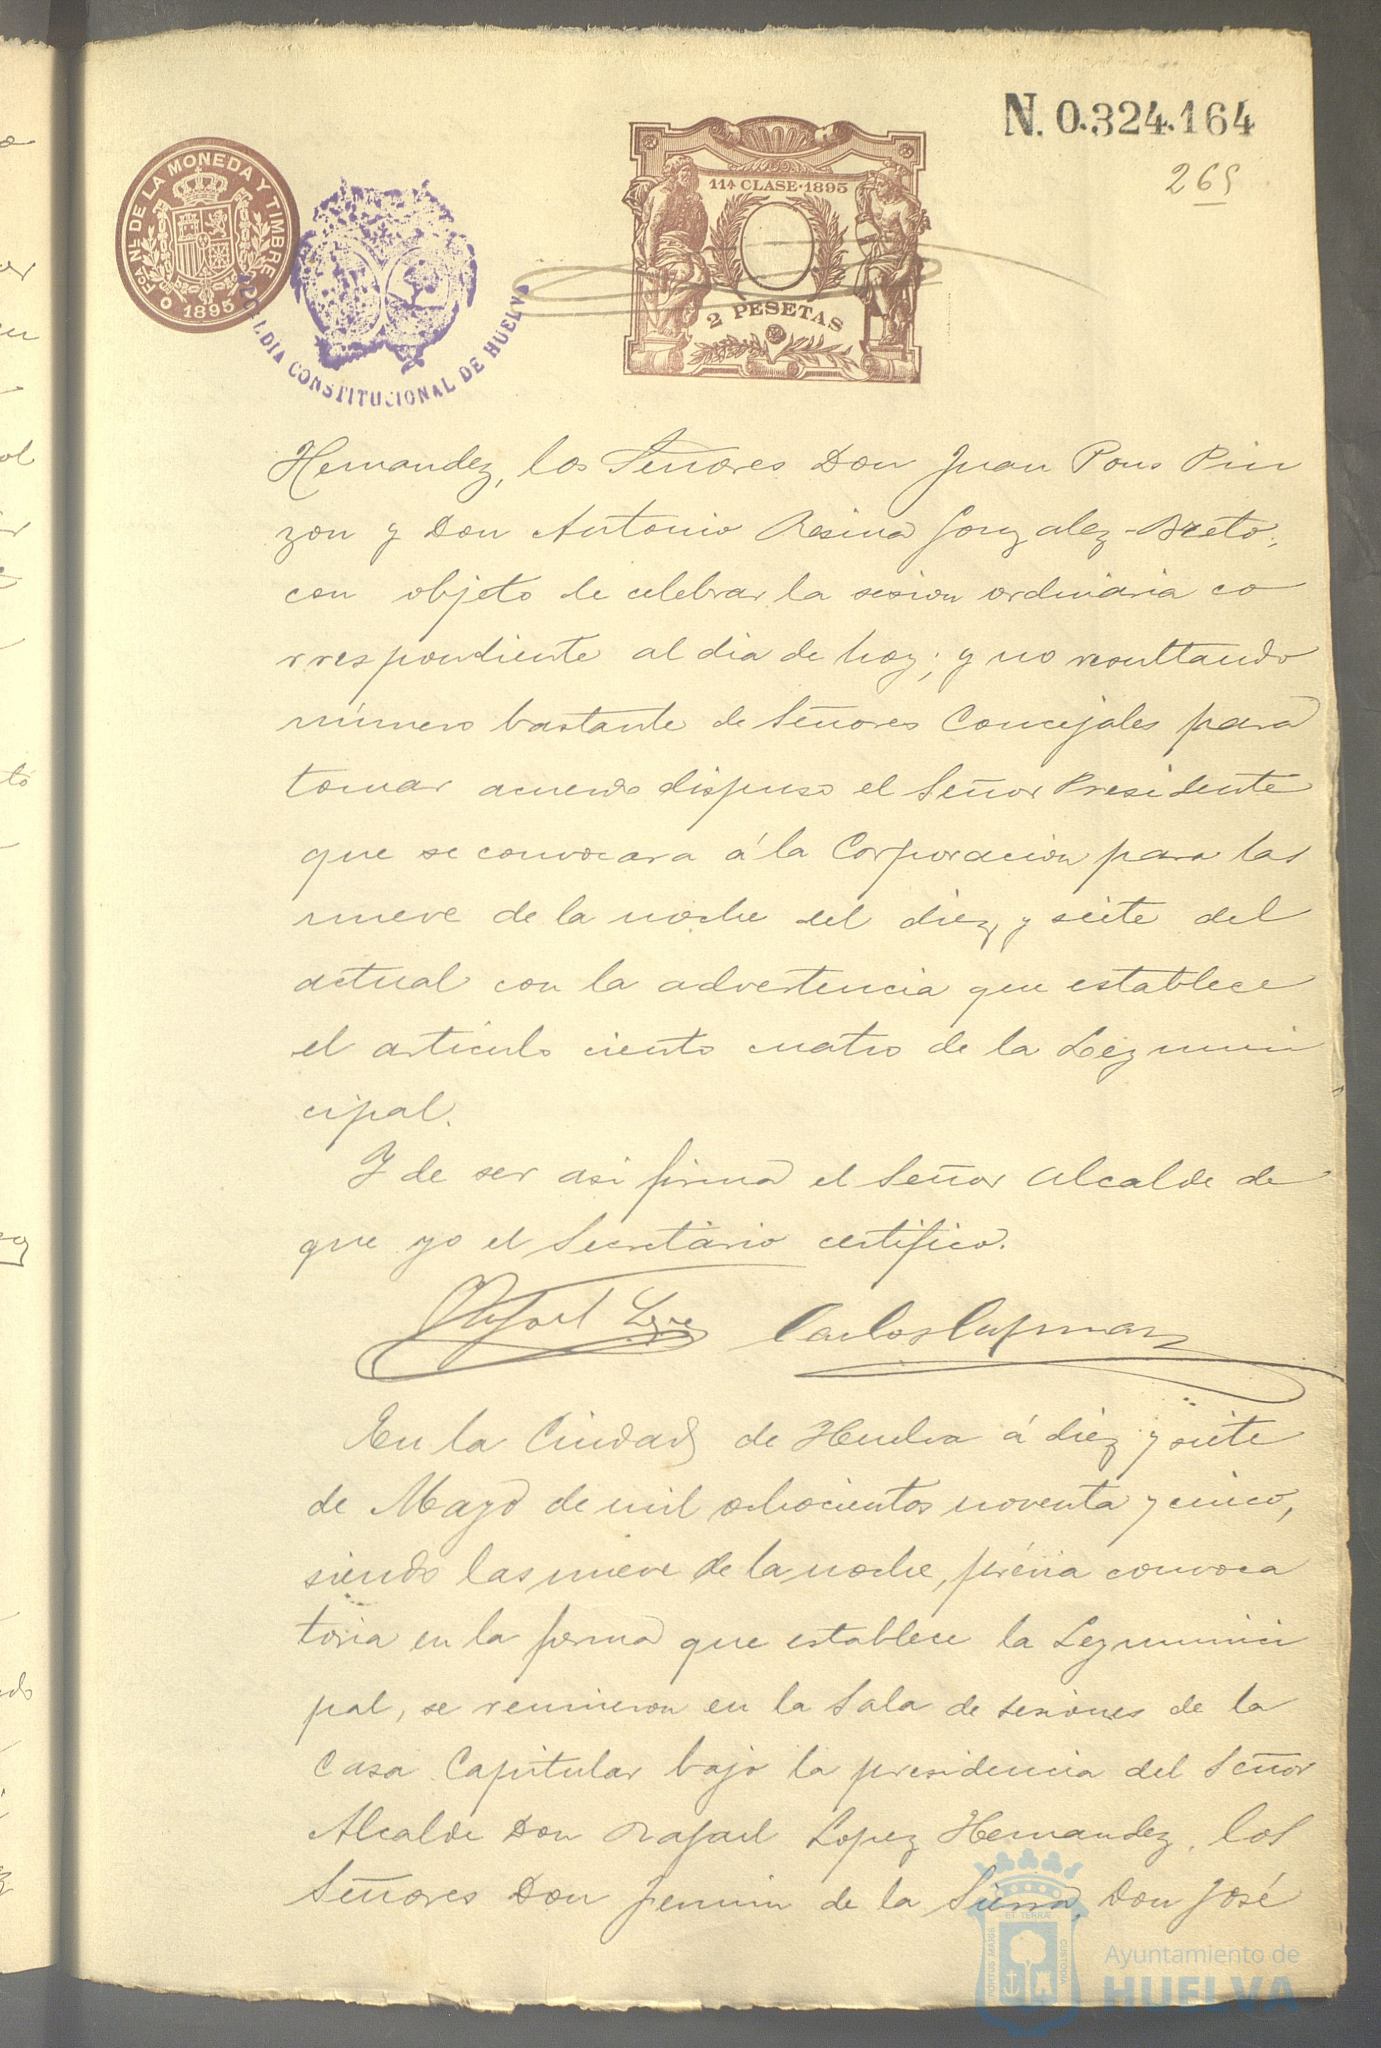 N. 0.324.164
265
FCA. NL. DE LA MONEDA Y TIMBRE
1895
ALCALDÍA CONSTITUCIONAL DE HUELVA
11ª CLASE·1895
2 PESETAS
Hernandez, los Señores Don Juan Pons Pin
zon y Don Antonio Resina Gonzalez-Breto,
con objeto de celebrar la sesion ordinaria co
rrespondiente al dia de hoy; y no resultando
número bastante de Señores Concejales para
tomar acuerdo dispuso el Señor Presidente
que se convocara á la Corporacion para las
nueve de la noche del diez y siete del
actual con la advertencia que establece
el artículo ciento cuatro de la Ley muni
cipal.
Y de ser asi firma el Señor Alcalde de
que yo el Secretario certifico.
Rafael Lopez Carlos
En la Ciudad de Huelva á diez y siete
de Mayo de mil ochocientos noventa y cinco,
siendo las nueve de la noche, prévia convoca
toria en la forma que establece la Ley munici
pal, se reunieron en la Sala de sesiones de la
Casa Capitular bajo la presidencia del Señor
Alcalde Don Rafael Lopez Hernandez, los
Señores Don Fermin de la Sierra, Don José
PORTUS MARIS ET TERRAE CUSTODIA
Ayuntamiento de
HUELVA